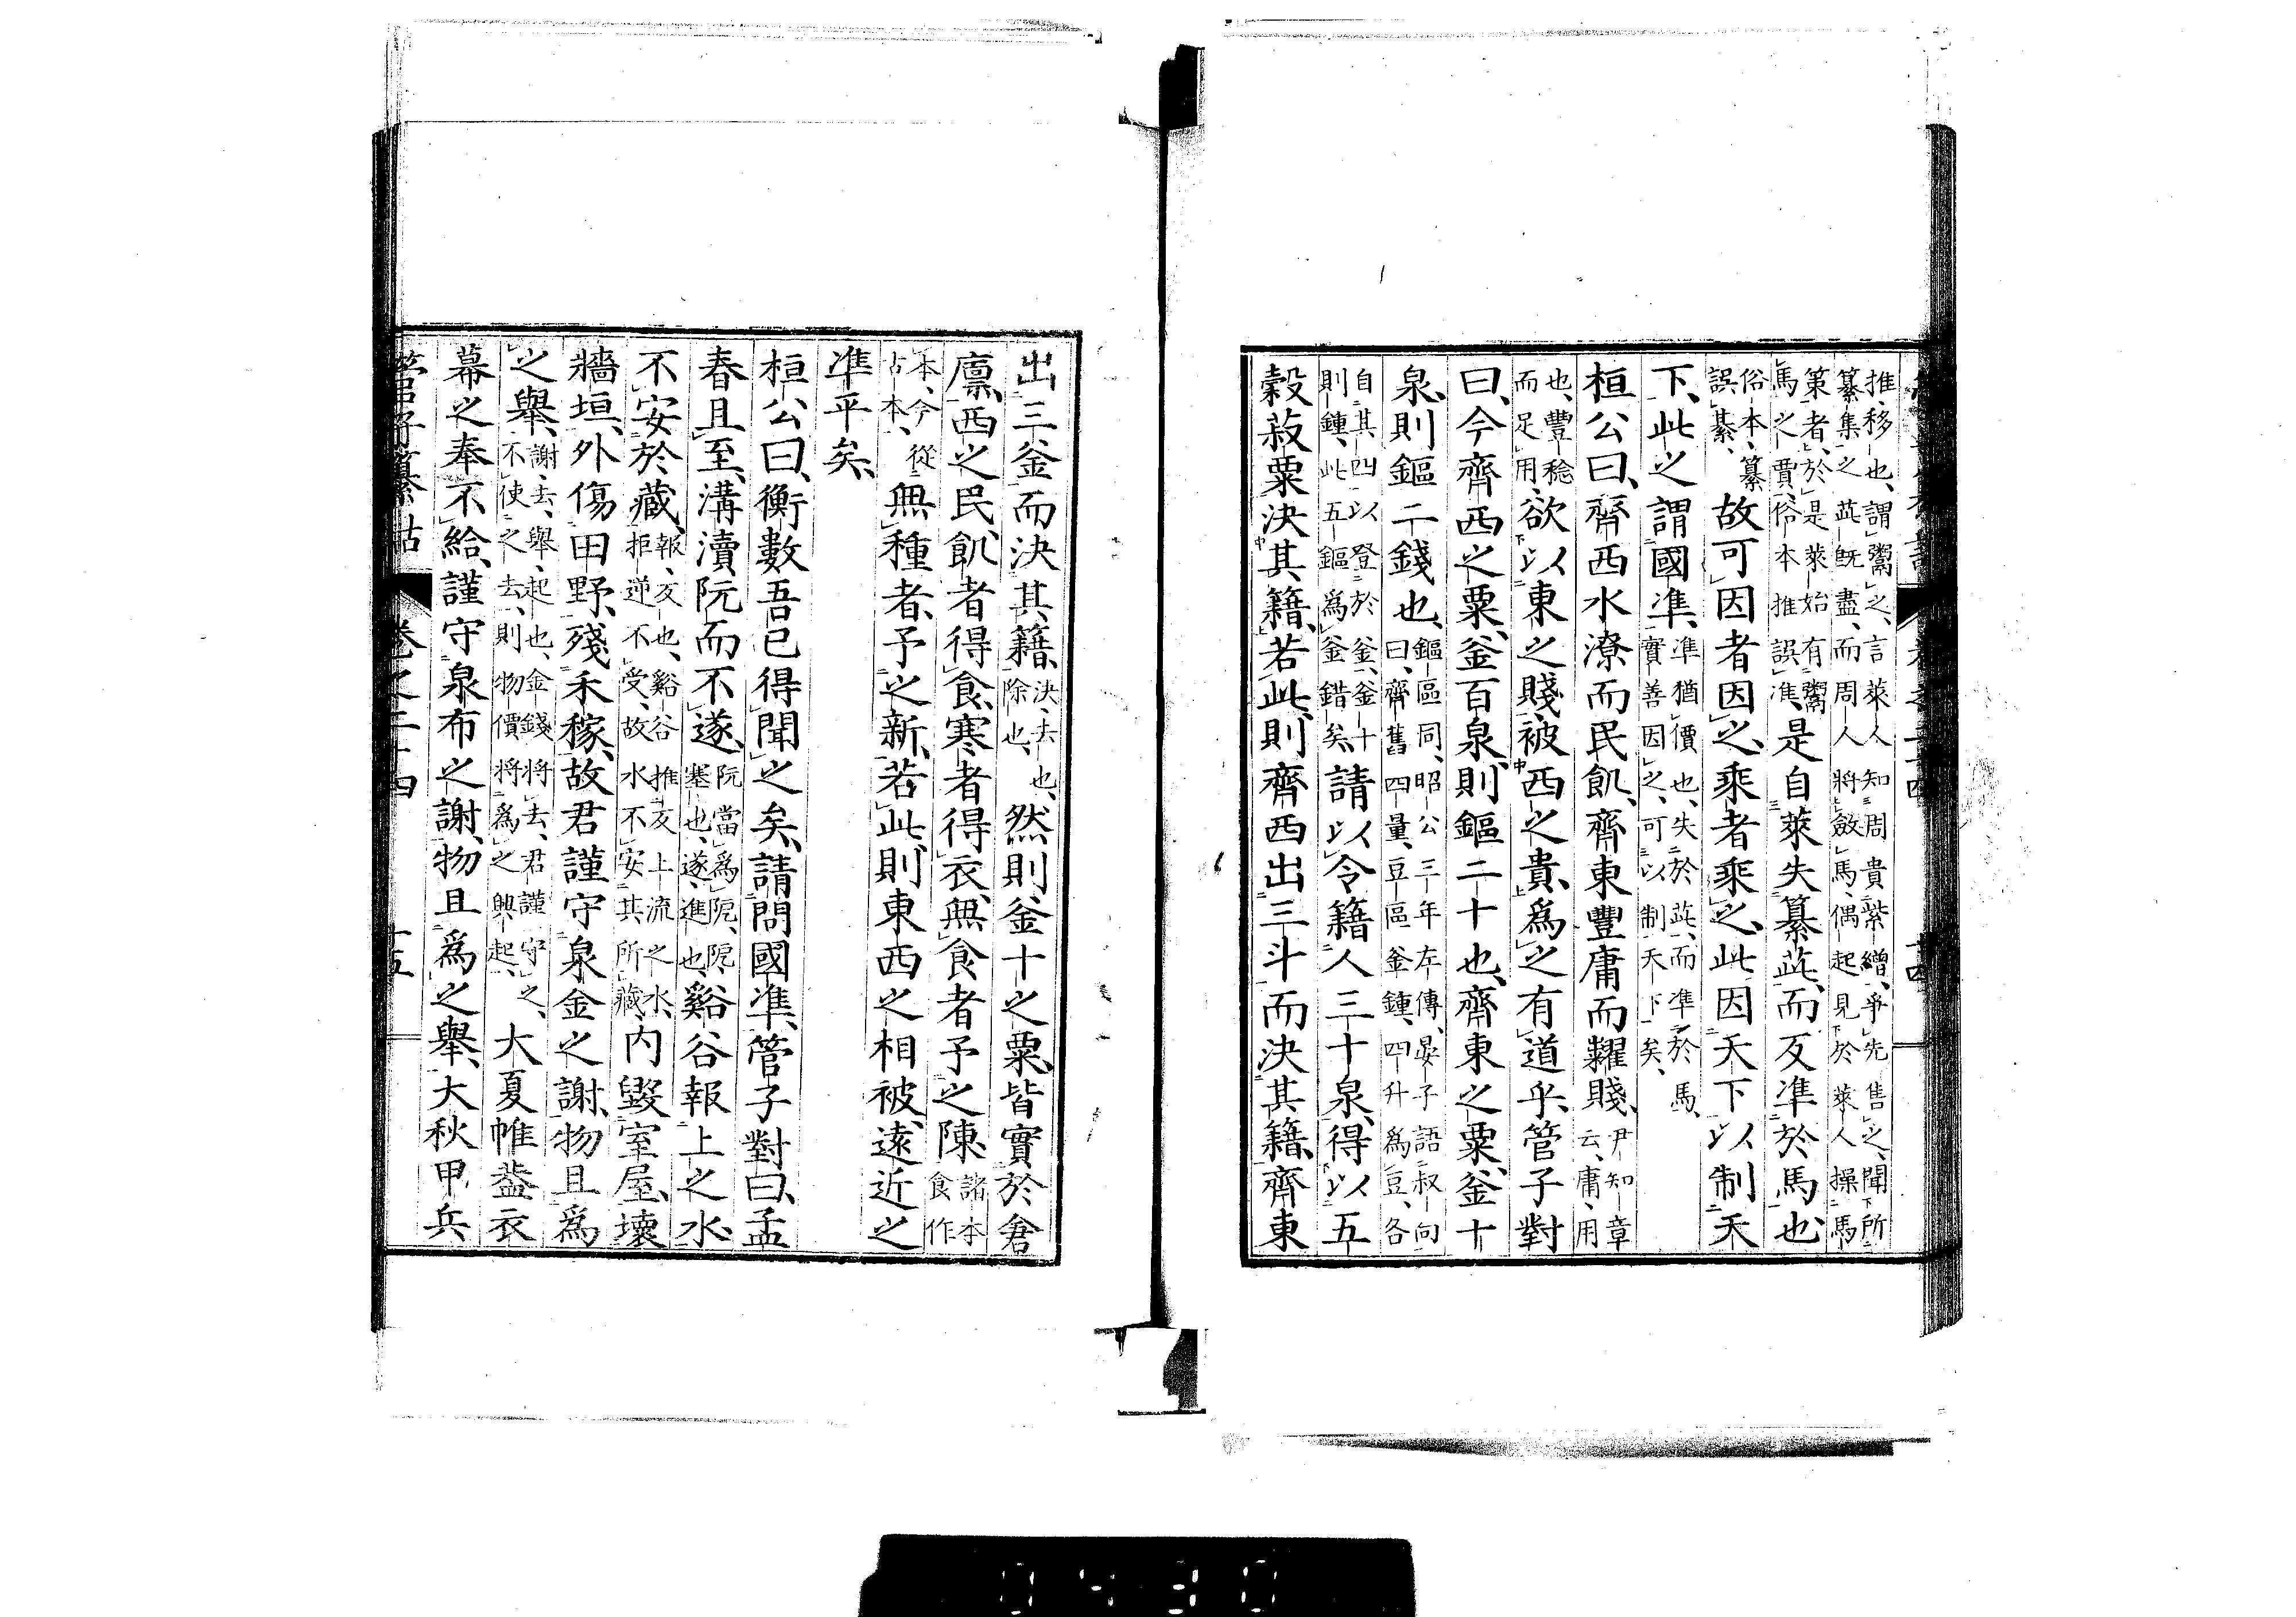 推移也、謂鬻之、言萊人知周貴紫繒、爭先售之、聞所
纂集之茈既盡、而周人將斂馬、偶起見於萊人操馬
策者、於是萊始有鬻
馬之賈、俗本推誤準、是自萊失纂茈、而反準於馬也、
俗本、纂
誤綦、故可因者因之、乘者乘之、此因天下以制天
下、此之謂國準、準猶價也、失於茈、而準於馬、
實善因之、可以制天下矣、
桓公曰、齊西水潦而民飢、齊東豐庸而糶賤、尹知章
云、庸、用
也、豐稔
而足用、欲以東之賤、被西之貴、爲之有道乎、管子對
曰、今齊西之粟、釜百泉、則鏂二十也、齊東之粟、釜十
泉、則鏂二錢也、鏂區同、昭公三年左傳、晏子語叔向
曰、齊舊四量、豆區釜鍾、四升爲豆、各
自其四以登於釜、釜十
則鍾、此五鏂爲釜錯矣、請以令籍人三十泉、得以五
穀菽粟決其籍、若此、則齊西出三斗而決其籍、齊東
出三釜而決其籍、決、去也、
除也、然則釜十之粟、皆實於倉
廩、西之民、飢者得食、寒者得衣、無食者予之陳、諸本
食作
本、今從
古本、無種者、予之新、若此、則東西之相被、遠近之
準平矣、
桓公曰、衡數吾已得聞之矣、請問國準、管子對曰、孟
春且至、溝瀆阮而不遂、阮當爲阸、阸、
塞也、遂、進也、谿谷報上之水、
不安於藏、報、反也、谿谷推反上流之水、
拒逆不受、故水不安其所藏、内毀室屋、壞
牆垣、外傷田野、殘禾稼、故君謹守泉金之謝、物且爲
之舉、謝、去、舉、起也、金錢將去、君謹守之、
不使之去、則物價將爲之興起、大夏帷葢衣
幕之奉不給、謹守泉布之謝、物且爲之舉、大秋甲兵
管子纂詁 卷之二十四 十五
0430